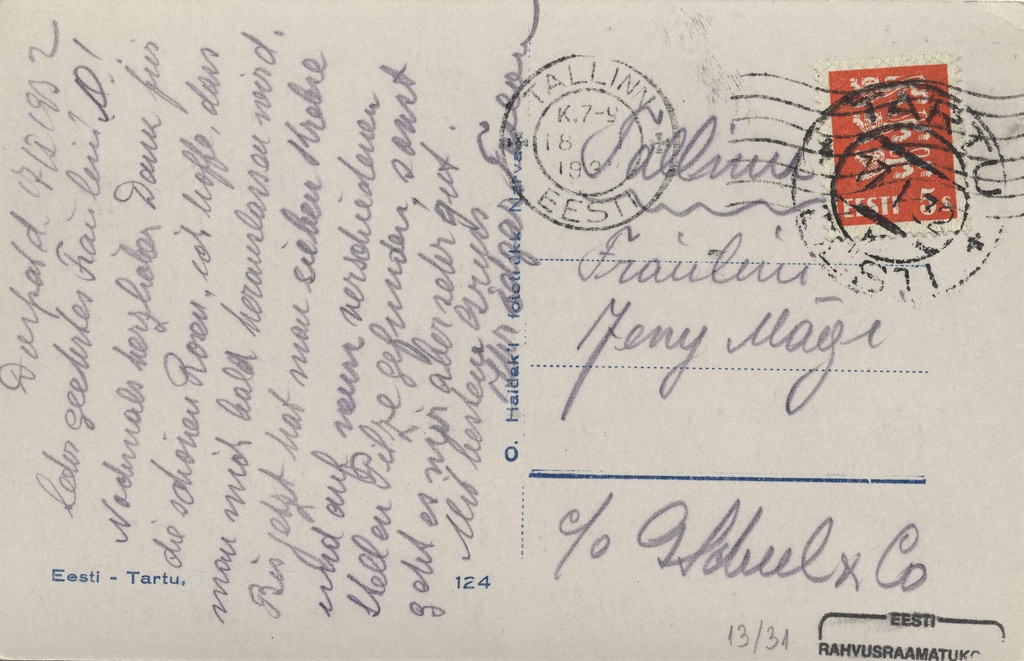 Dorpat d. 17/8 1932
Sehr geehrtes Fräulein O!
Nochmals herzlichen Dank für
die schönen Rosen, ich hoffe, dass
man mich bald herauslassen wird.
Bis jetzt hat man sieben
und auf neun verschiedenen
Stellen Pilze gefunden, sonst
geht es mir aber sehr gut.
Mit bestem Gruß
Ihr
Eesti - Tartu,
124
O. Haidak'i fototrükk Narvas
TALLINN
K.7-9
18
193
EESTI
TARTU
EESTI
EESTI 5 s
Tallinn
Fräulein
Jeny Mägi
c/o G Scheel & Co
13/31
EESTI
RAHVUSRAAMATUKO